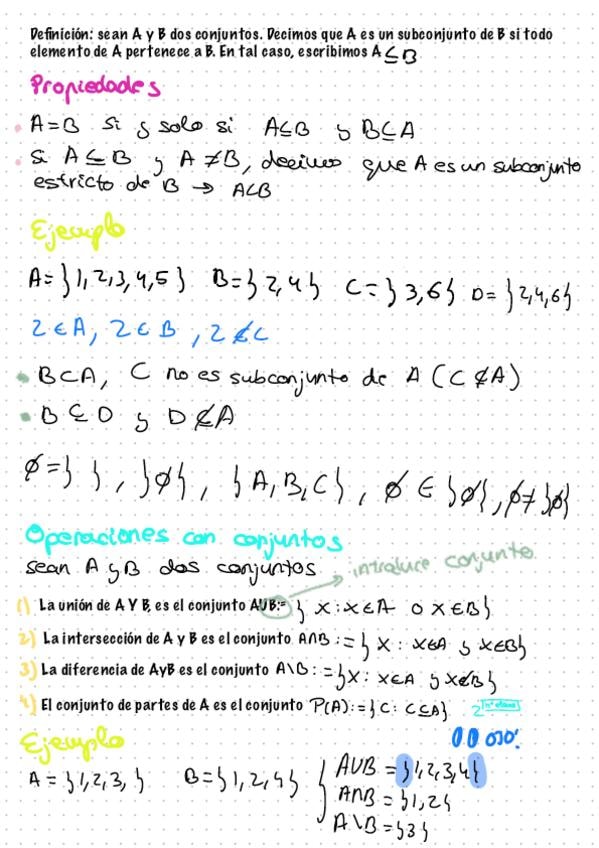 Definición: sean A y B dos conjuntos. Decimos que A es un subconjunto de B si todo
elemento de A pertenece a B. En tal caso, escribimos A ⊆ B
Propiedades
• A=B si y solo si A⊆B y B⊆A
• Si A⊆B y A≠B, decimos que A es un subconjunto
estricto de B → A⊂B
Ejemplo
A={1,2,3,4,5} B={2,4} C={3,6} D={2,4,6}
2∈A, 2∈B, 2∉C
• B⊂A, C no es subconjunto de A (C⊄A)
• B⊆D y D⊄A
∅={ }, {∅}, {A,B,C}, ∅∈{∅}, ∅≠{∅}
Operaciones con conjuntos
sean A y B dos conjuntos → introduce conjunto
1) La unión de A Y B, es el conjunto AUB:= {x:x∈A o x∈B}
2) La intersección de A y B es el conjunto A∩B:={x: x∈A y x∈B}
3) La diferencia de AyB es el conjunto A\B:={x: x∈A y x∉B}
4) El conjunto de partes de A es el conjunto P(A):={C: C⊆A} 2
Ejemplo OJO!
A={1,2,3,} B={1,2,4} { AUB={1,2,3,4}
A∩B={1,2}
A\B={3}